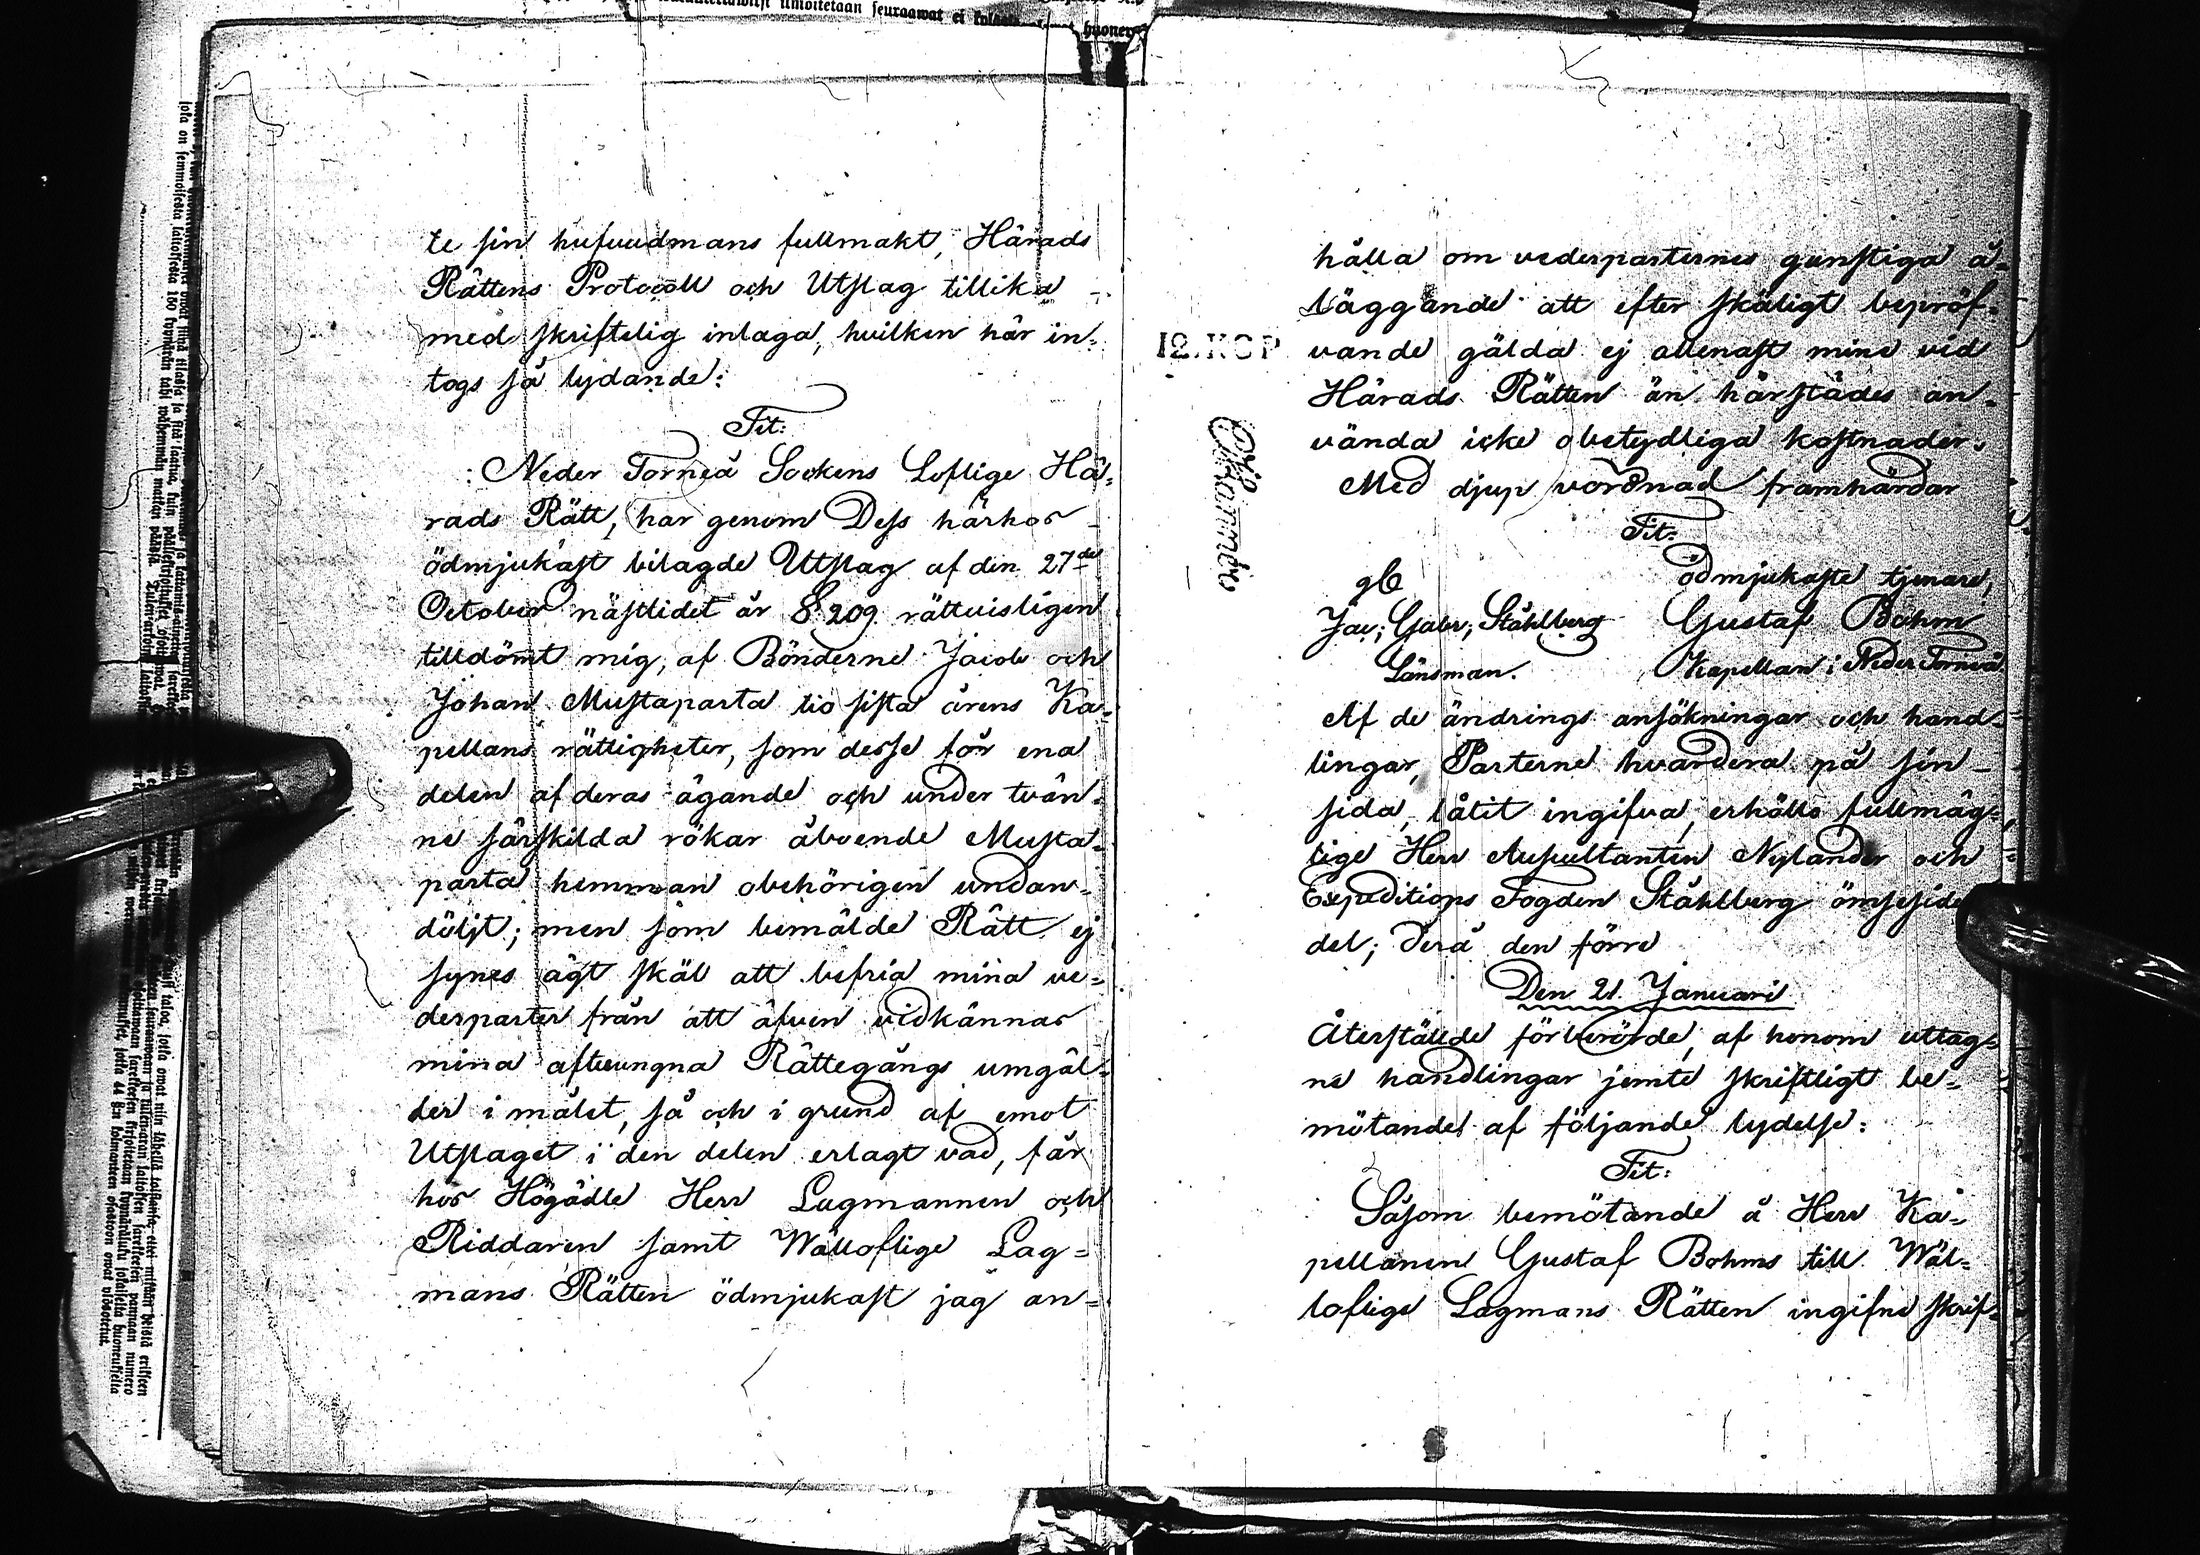 te sin hufvudmans fullmakt, Härads
Rättens Protocoll och Utslag tillika
med skriftelig inlaga, hvilken här in-
togs så lydande:
Tit:
Neder Torneå Sockens Loflige Hä-
rads Rätt, har genom Dess härhos
ödmjukast bilagde Utslag af den 27de
October nästlidet år § 209 rättvisligen
tilldömt mig, af Bönderne Jacob och
Johan Mustaparta tio sista årens Ka-
pellans rättigheter, som desse för ena
delen af deras ägande och under tvän-
ne särskilda rökar åboende Musta-
parta hemman obehörigen undan-
döljt; men som bemälde Rätt ej
synes ägt skäl att befria mina ve-
derparter från att äfven vidkännas
mina aftvungna Rättegångs umgäl-
der i målet, så och i grund af emot
Utslaget i den delen erlagt vad, får
hos Högädle Herr Lagmannen och
Riddaren samt Wälloflige Lag-
mans Rätten ödmjukast jag an-
hålla om vederparternes gunstiga å-
läggande att efter skäligt bepröf-
vande gälda ej allenast mine vid
Härads Rätten än härstädes an-
vända icke obetydliga kostnader.
Med djup vördnad framhärdar
Tit:
ödmjukaste tjenare,
Jac; Gabr; Ståhlberg Gustaf Bohm
Länsman. Kapellan i Neder Torneå
Af de ändrings ansökningar och hand-
lingar, Parterne hvardera på sin
sida, låtit ingifva, erhöllo fullmäg-
tige Herr Auscultanten Nylander och
Expeditions Fogden Ståhlberg ömseside
del; derå den förre
Den 21. Januari
Återställde förberörde, af honom uttag-
ne handlingar jemte skriftligt be-
mötande af följande lydelse:
Tit:
Såsom bemötande å Herr Ka-
pellanen Gustaf Bohms till Wäl-
loflige Lagmans Rätten ingifne skrif-
12.KOP